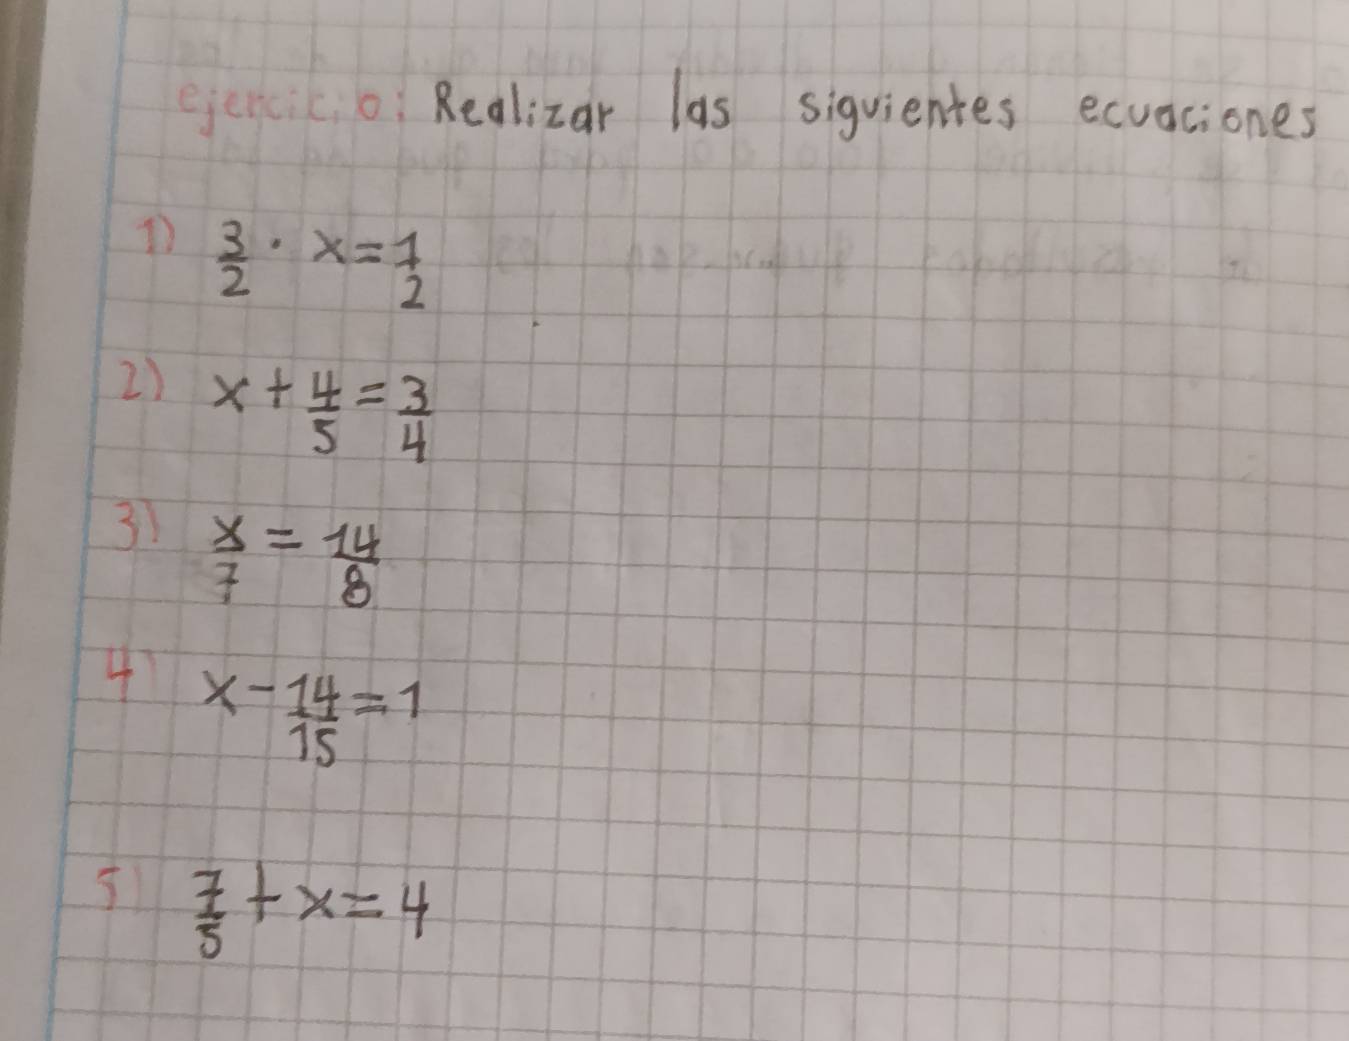 ejercicio: Realizar las siguientes ecuaciones
1) 3/2 · x = 1/2
2) x + 4/5 = 3/4
3) x/7 = 14/8
4) x - 14/15 = 1
5) 7/5 + x = 4